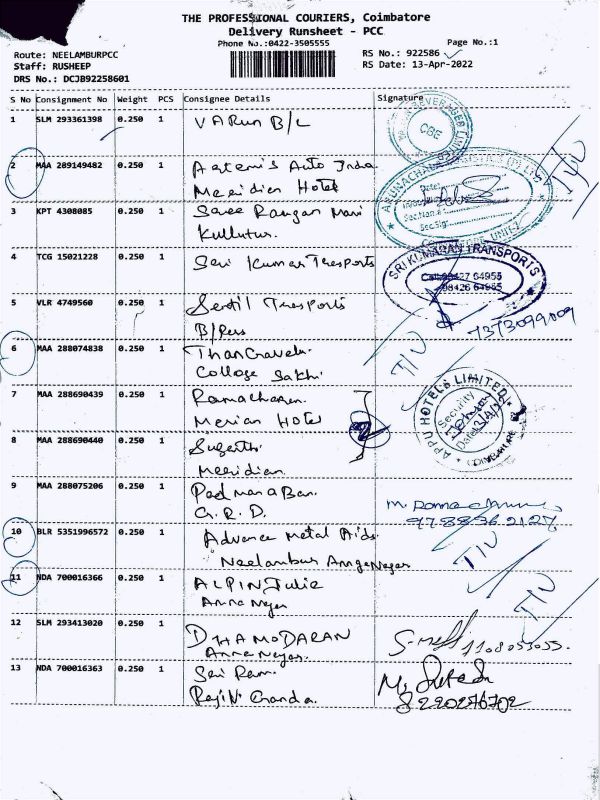 THE PROFESSIONAL COURIERS, Coimbatore
Delivery Runsheet - PCC
Phone No.:0422-3505555
Page No.:1
Route: NEELAMBURPCC
RS No.: 922586
Staff: RUSHEEP
RS Date: 13-Apr-2022
DRS No.: DCJB92258601
S No Consignment No Weight PCS Consignee Details Signature
1 SLM 293361398 0.250 1 VARun B/L
CBE
2 MAA 289149482 0.250 1 Artemis Auto India
Meeridien Hotel
3 KPT 4308085 0.250 1 Saree Rangan Mani
Kullutur.
4 TCG 15021228 0.250 1 Sri Kumar Tresports
SRI KUMARAN TRANSPORTS
Cell: 98427 64955
98426 64955
5 VLR 4749560 0.250 1 Sentil Tresports
B/Pers
7373099009
6 MAA 288074838 0.250 1 Thangravelu.
College Sakhi
T/U
7 MAA 288690439 0.250 1 Ramacharen.
Merian Hotel
APPU HOTELS LIMITED
Security
COIMBATORE
8 MAA 288690440 0.250 1 Sugerth.
Meeridian.
9 MAA 288075206 0.250 1 Padmanaban.
G.R.D.
10 BLR 5351996572 0.250 1 Advance Metal Aids
Neelambur AnnaNagar
T/U
11 NDA 700016366 0.250 1 ALPIN Julie
Anna Nagar
T/U
12 SLM 293413020 0.250 1 DHAMODARAN
Anna Nagar.
13 NDA 700016363 0.250 1 Sri Ram.
Rajiv Ganda.
8220276702